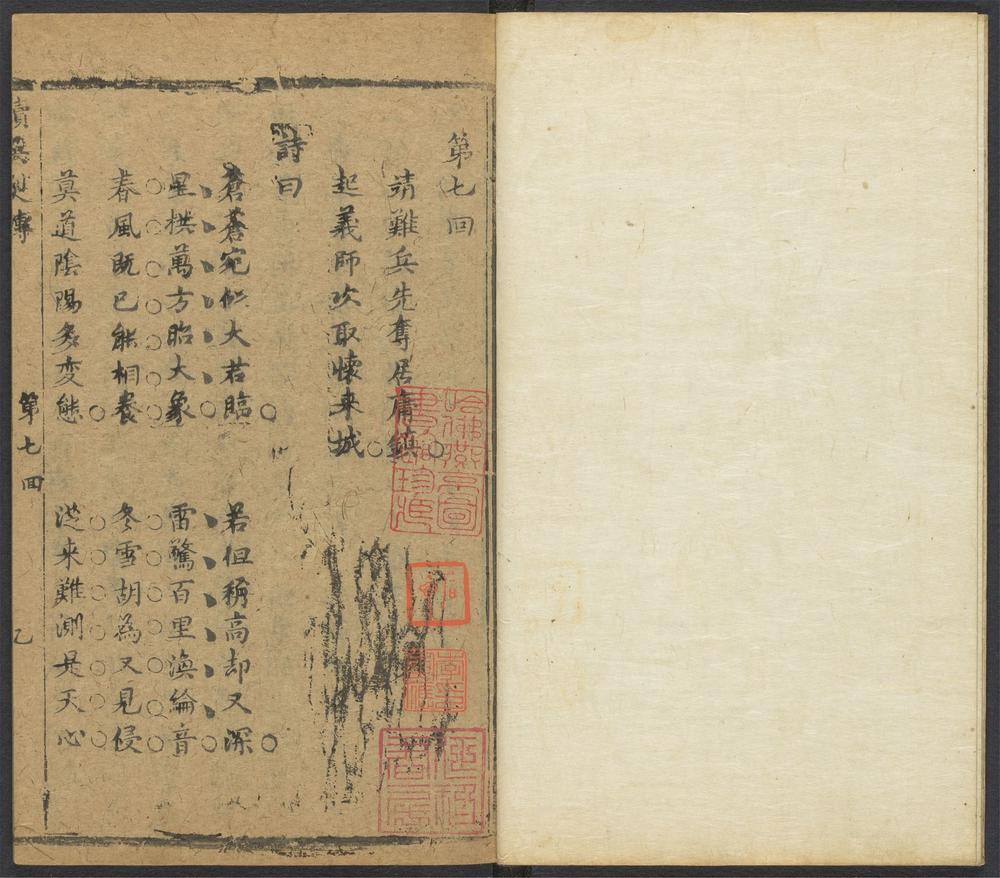 第七回
靖難兵先奪居庸鎮
起義師次取懷来城
詩曰
蒼蒼宛似大若臨 若但稱高却又深
星拱萬方昭大象 雷驚百里渙綸音
春風既已能相養 冬雪胡為又見侵
莫道陰陽多变態 從来難測是天心
續英烈傳
第七回
乙
哈佛燕
圖書
珍